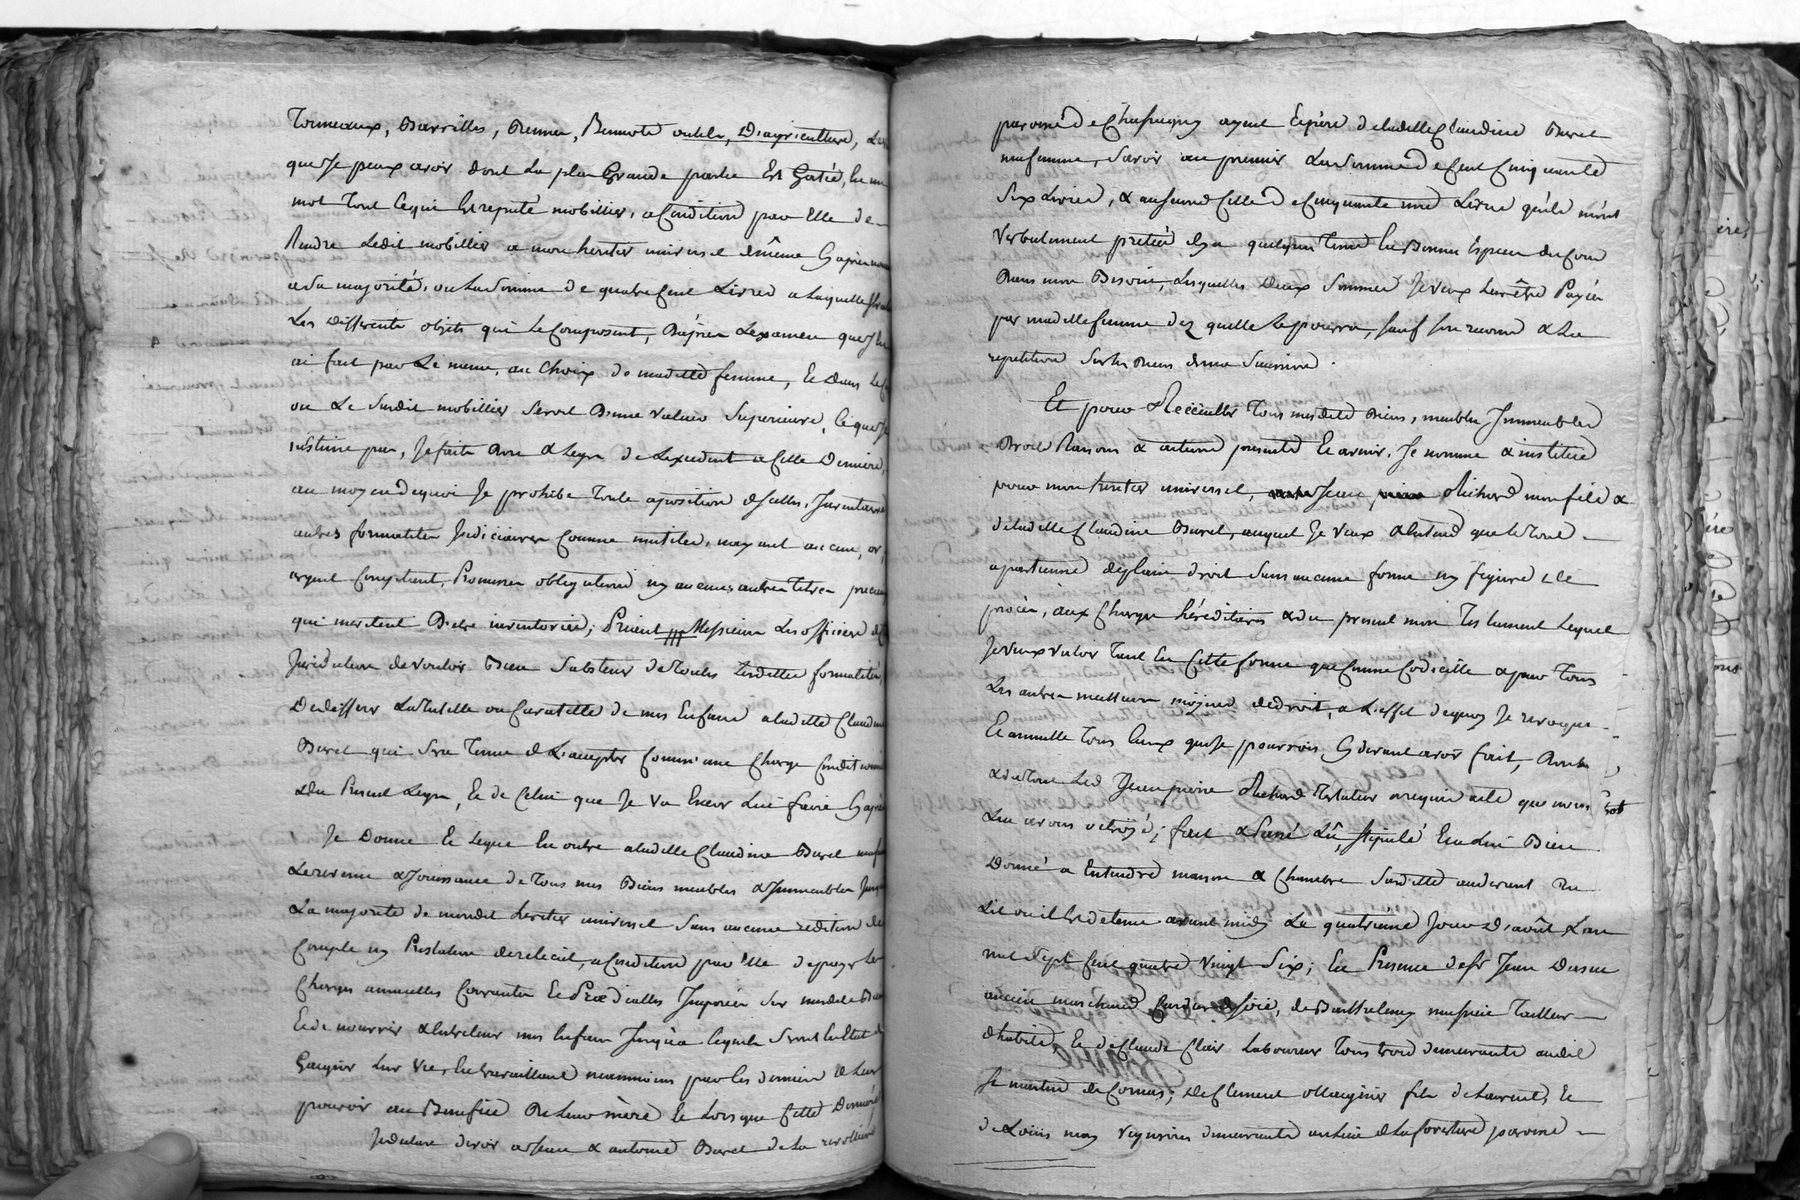 Tonneaux, Barrilles, Benne, Bennote outils, D'agriculture,
que Je peux avoir dont La plus Grande partie Est Gatée, En un
mot Tout Ce qui Est reputé mobillier, a Condition par Elle de
Rendre Ledit mobillier a mon heritier universel de même Cy après nommé
a Sa majorité, ou La Somme de quatre Cent Livres a Laquelle
Les Differents objets qui Le Composent, D'après L'examen que J'en
ai fait par Le menu, au Choix de maditte femme, Et Dans Le Cas
ou Le Susdit mobillier Seroit D'une valeur Superieure, Ce que Je
n'estime pas, Je fais Don & Legs de L'excedent a Cette Derniere,
au moyen de quoi Je prohibe Toute aposition de Scellés, Inventaire
autres formalités Judiciaires Comme inutiles, n'ayant aucun, or,
argent Comptant, Promesses obligations ny aucuns autres titres
qui meritent D'Etre inventoriés; Priant Messieurs Les officiers de
Juridiction de vouloir Bien S'abstenir de Toutes Lesdittes formalités
De deffferer La Tutelle ou Curatelle de mes Enfans a laditte Claudine
Burel qui Sera Tenue de L'accepter Comme une Charge Conditionnelle
& du Present Legs, Et de Celui que Je va Encor Lui faire Cy après
Je Donne Et Legue En outre a laditte Claudine Burel ma femme
Le revenu & Jouissance de Tous mes Biens meubles & Immeubles Jusqu'a
La majorité de mondit heritier universel Sans aucune redition de
Compte ny Prestation de reliquat, a Condition par Elle de payer les
Charges annuelles Courantes Et Prædialles Imposées Sur mesdits Biens
Et de nourrir & Entretenir mes Enfans Jusqu'a Ce qu'ils Soient En Etat de
Gaigner Leur Vie, En travaillant neanmoins pour Les derniers de Leur
pouvoir au Benefice De Leur mere Et Lors que Cette Derniere
Je declare devoir a Jean & antoine Burel de La
paroisse de Chassagny ayeul Et père de laditte Claudine Burel
ma femme, Savoir au premier La Somme de Cent Cinquante
Six Livres, & au Second Celle de Cinquante une Livres qu'ils m'ont
Verbalement pretées Il y a quelques Tems En Bonnes Espèces du Cour
Dans mon Besoin, Lesquelles Deux Sommes Je veux Leur être Payées
par madite femme dez qu'elle Le pourra, Sauf Son recours & La
repetition Sur les Biens de ma Succession.
Et pour Recceuillir Tous mesdits Biens, meubles Immeubles
Droits Raisons & actions presents Et avenir, Je nomme & institue
pour mon heritier universel, Jean Richard mon fils &
de laditte Claudine Burel, auquel Je Veux & Entend que le Tout
apartienne de plain droit Sans aucune forme ny figure de
procès, aux Charges héréditaires & du present mon Testament Lequel
Je veux valoir Tant En Cette forme que Comme Codicille & par Tous
Les autres meilleurs moyens de droit, a L'effet de quoi Je revoque
Et annulle Tous Ceux que Je pourrois Cy devant avoir fait,
& du Tout Led Jean pierre Richard Testateur a requis acte que nous
Lui avons octroyé; fait & Passé Lû, Stipulé Et a Lui Bien
Donné a Entendre maison & Chambre Susditte au devant Du
Lit ou il Est detenu avant midy Le quatrième Jour D'aoùt L'an
mil Sept Cent quatre Vingt Six; En Presence de Sr Jean
ancien marchand de Soie, de Barthelemy Tailleur
d'habits, Et de Claude Clair Laboureur Tous trois demeurants audit
St martin de Cornas; De Clement fils de Laurent, Et
de Louis vigneron demeurants au Lieu de La paroisse